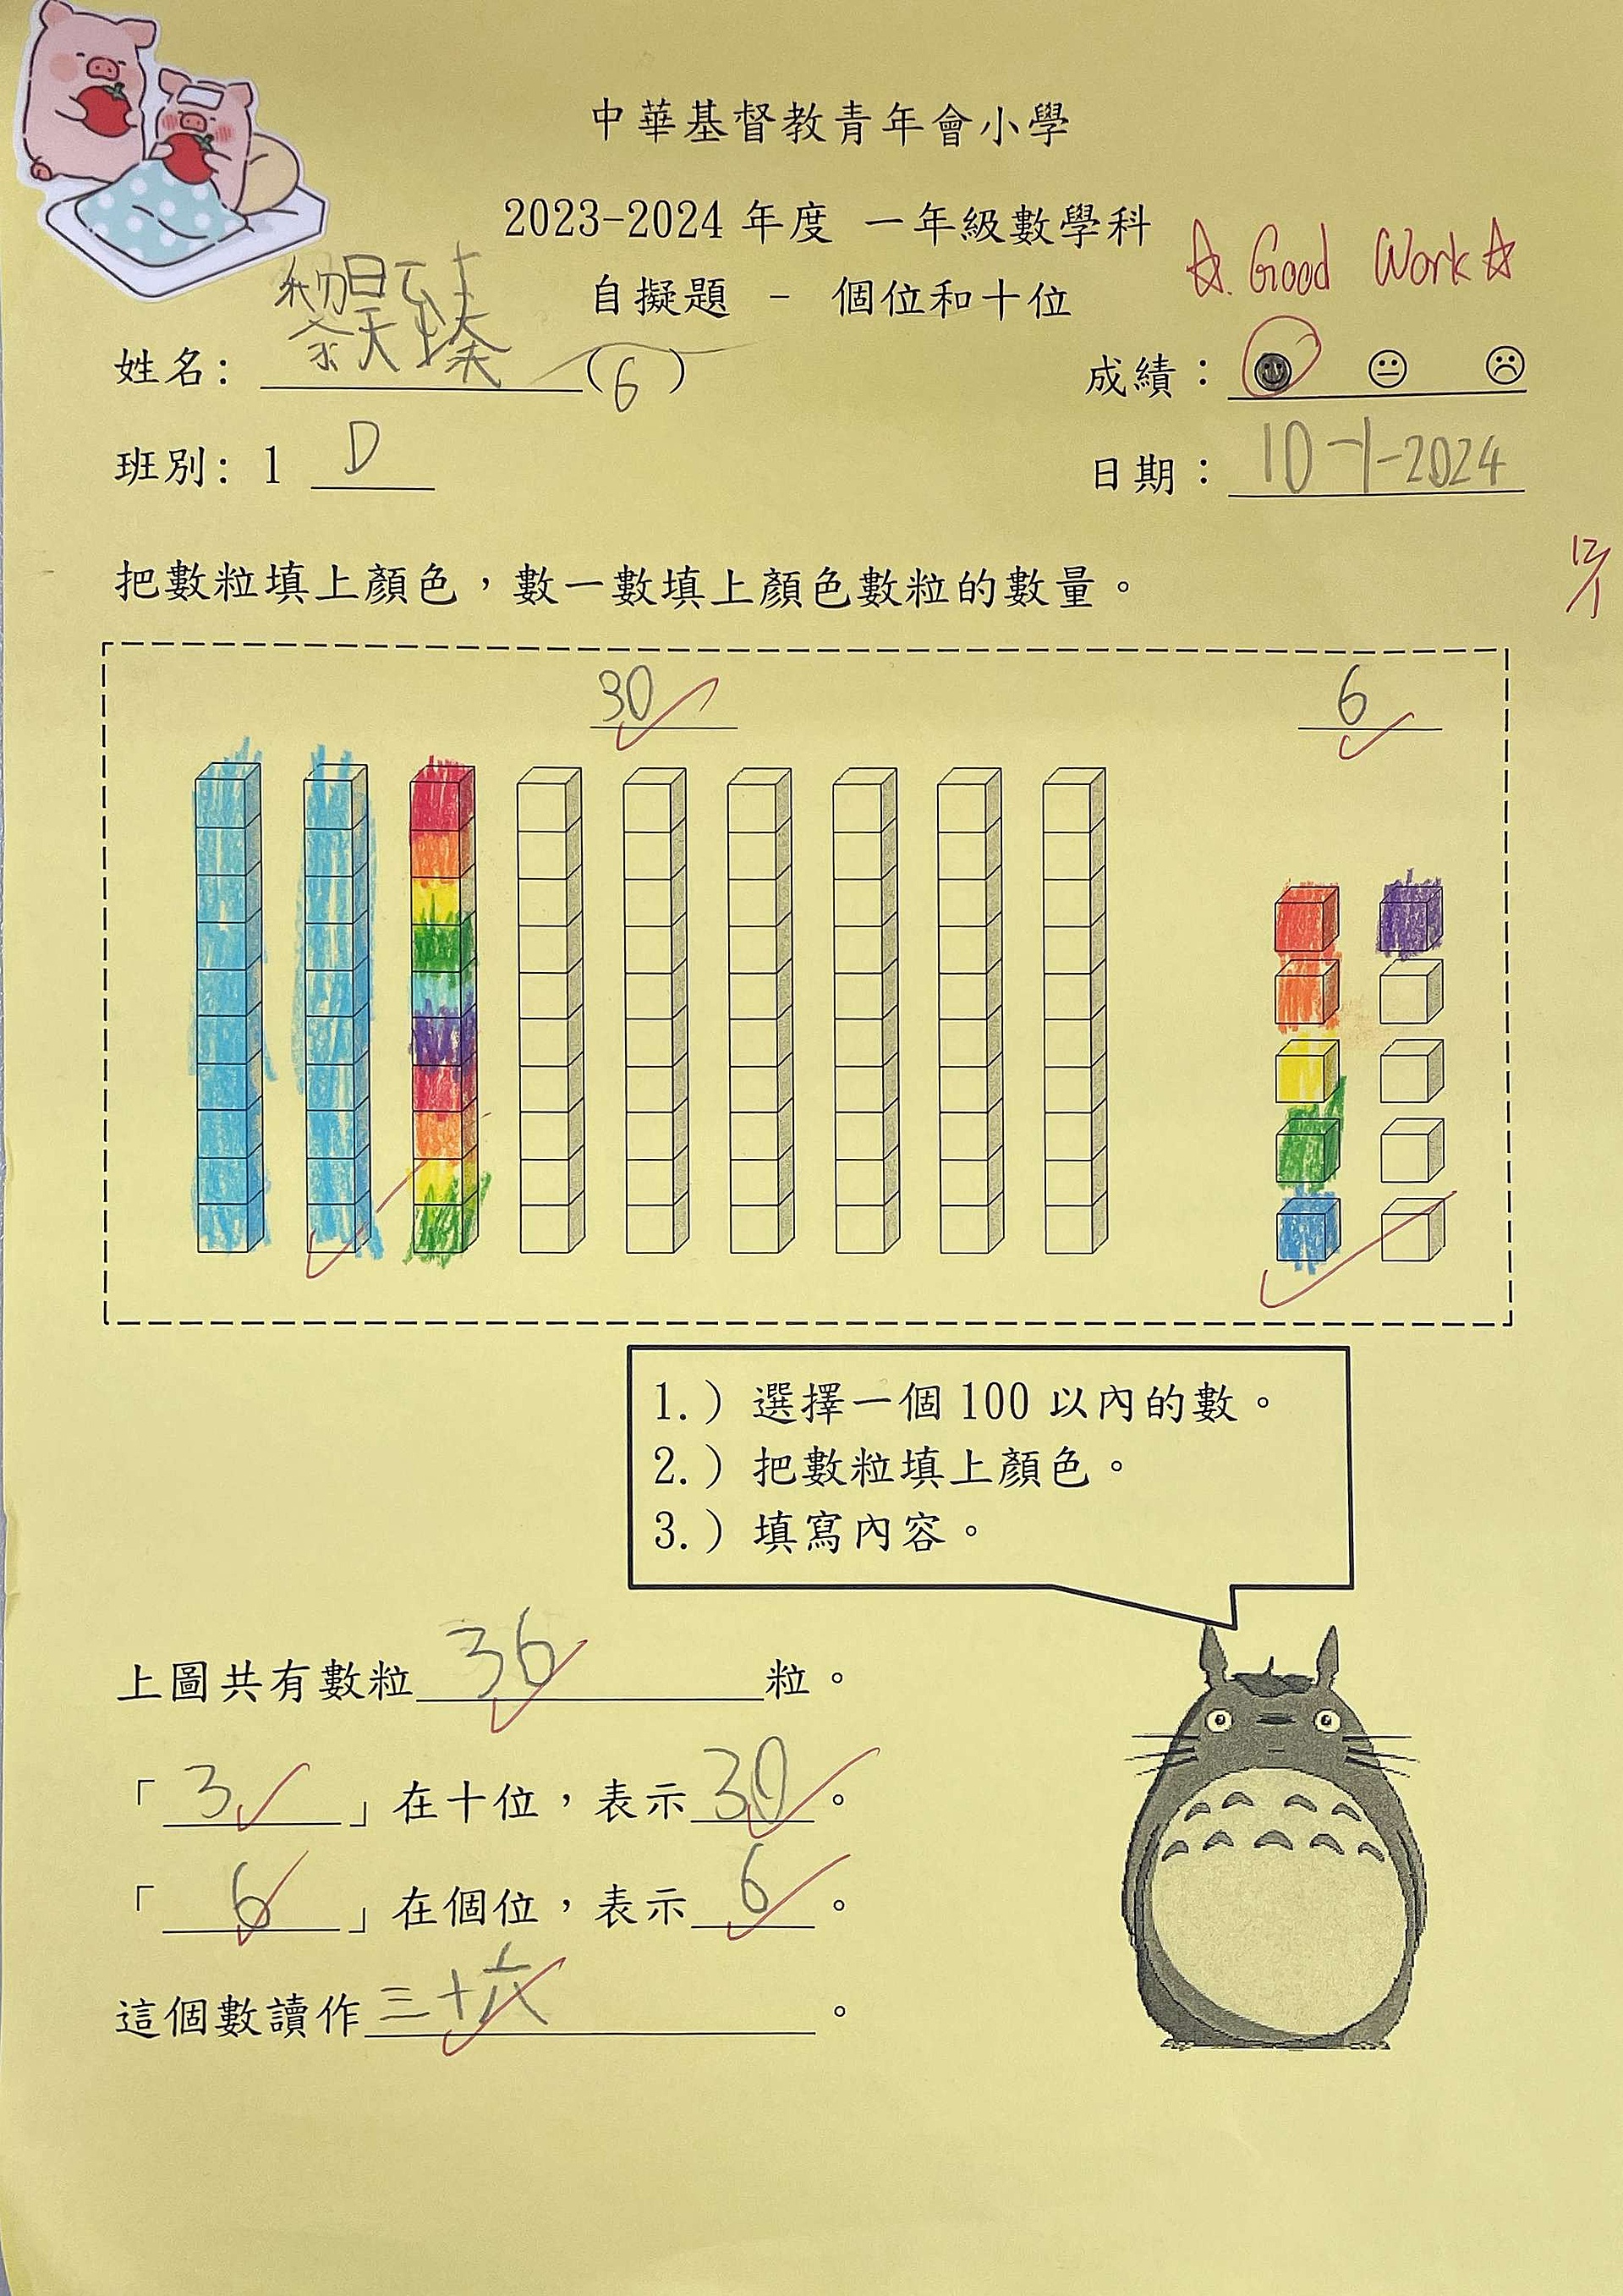 中華基督教青年會小學
2023-2024 年度 一年級數學科
☆. Good Work ☆
自擬題 - 個位和十位
姓名: 黎昊臻 (6)
成績：
班別: 1 D
日期：10-1-2024
把數粒填上顏色，數一數填上顏色數粒的數量。
12/1
30 6
1.) 選擇一個 100 以內的數。
2.) 把數粒填上顏色。
3.) 填寫內容。
上圖共有數粒 36 粒。
「 3 」在十位，表示 30 。
「 6 」在個位，表示 6 。
這個數讀作 三十六 。